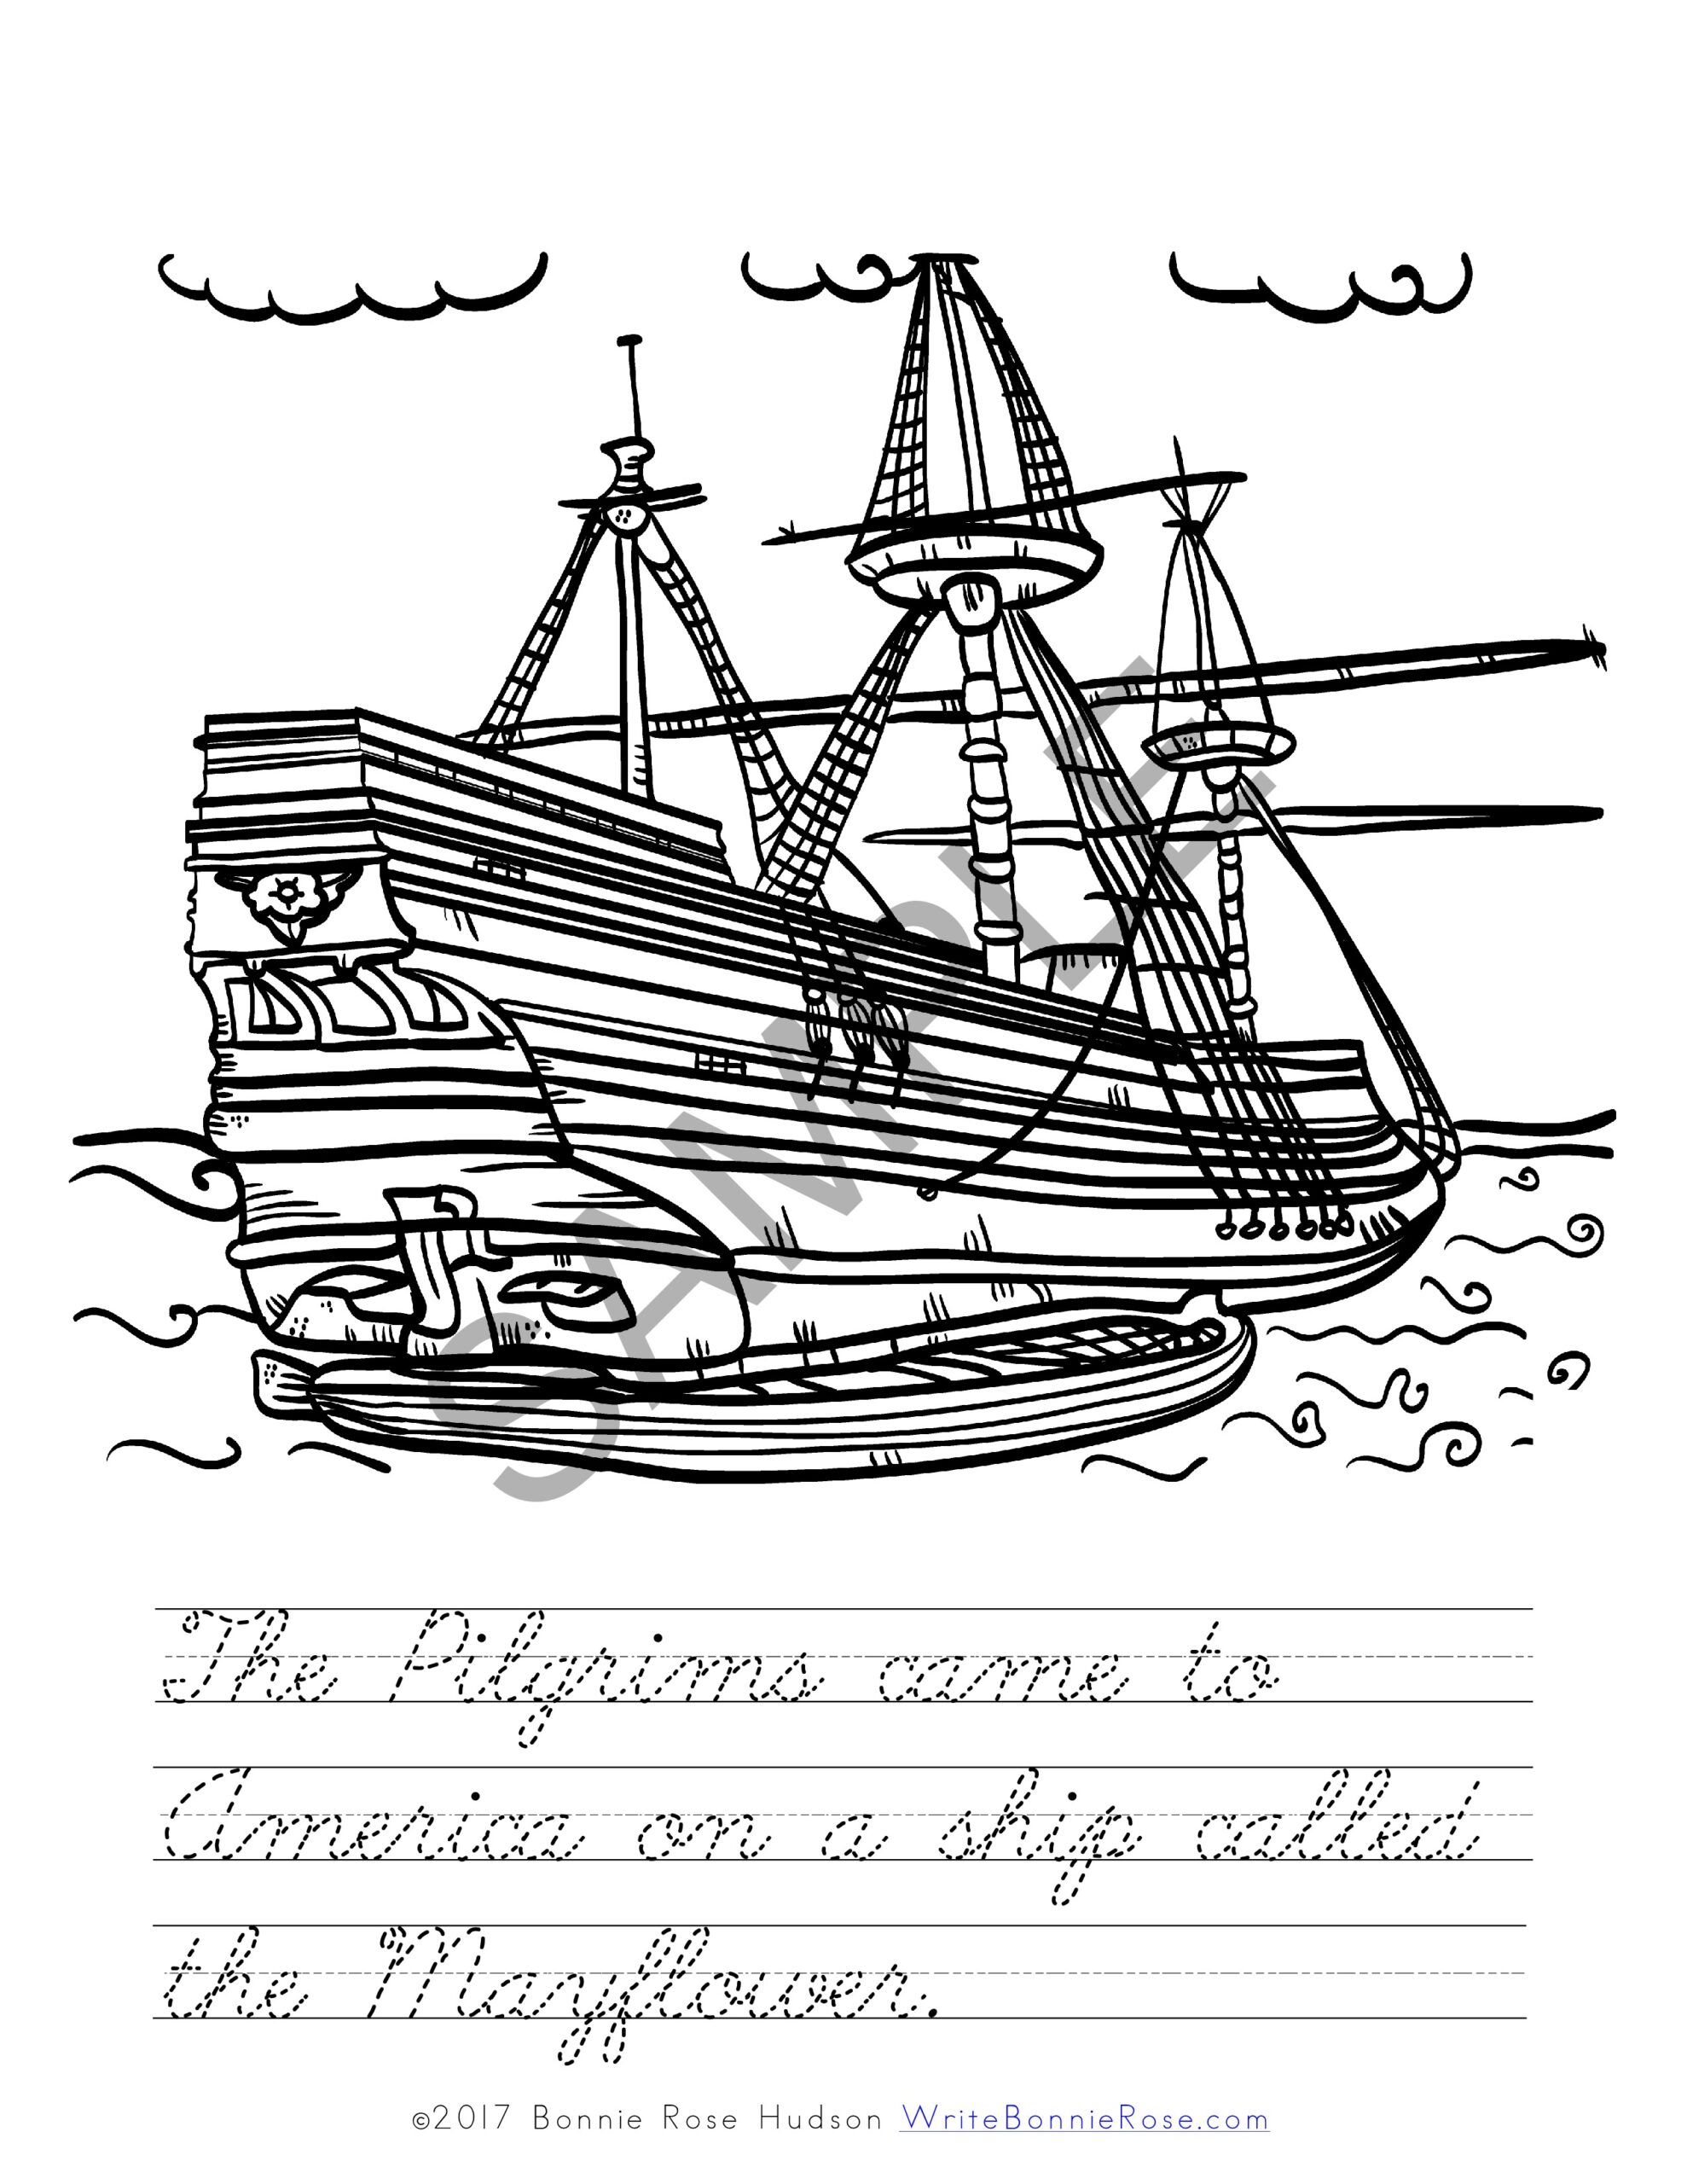 SAMPLE
The Pilgrims came to
America on a ship called
the Mayflower.
©2017 Bonnie Rose Hudson WriteBonnieRose.com